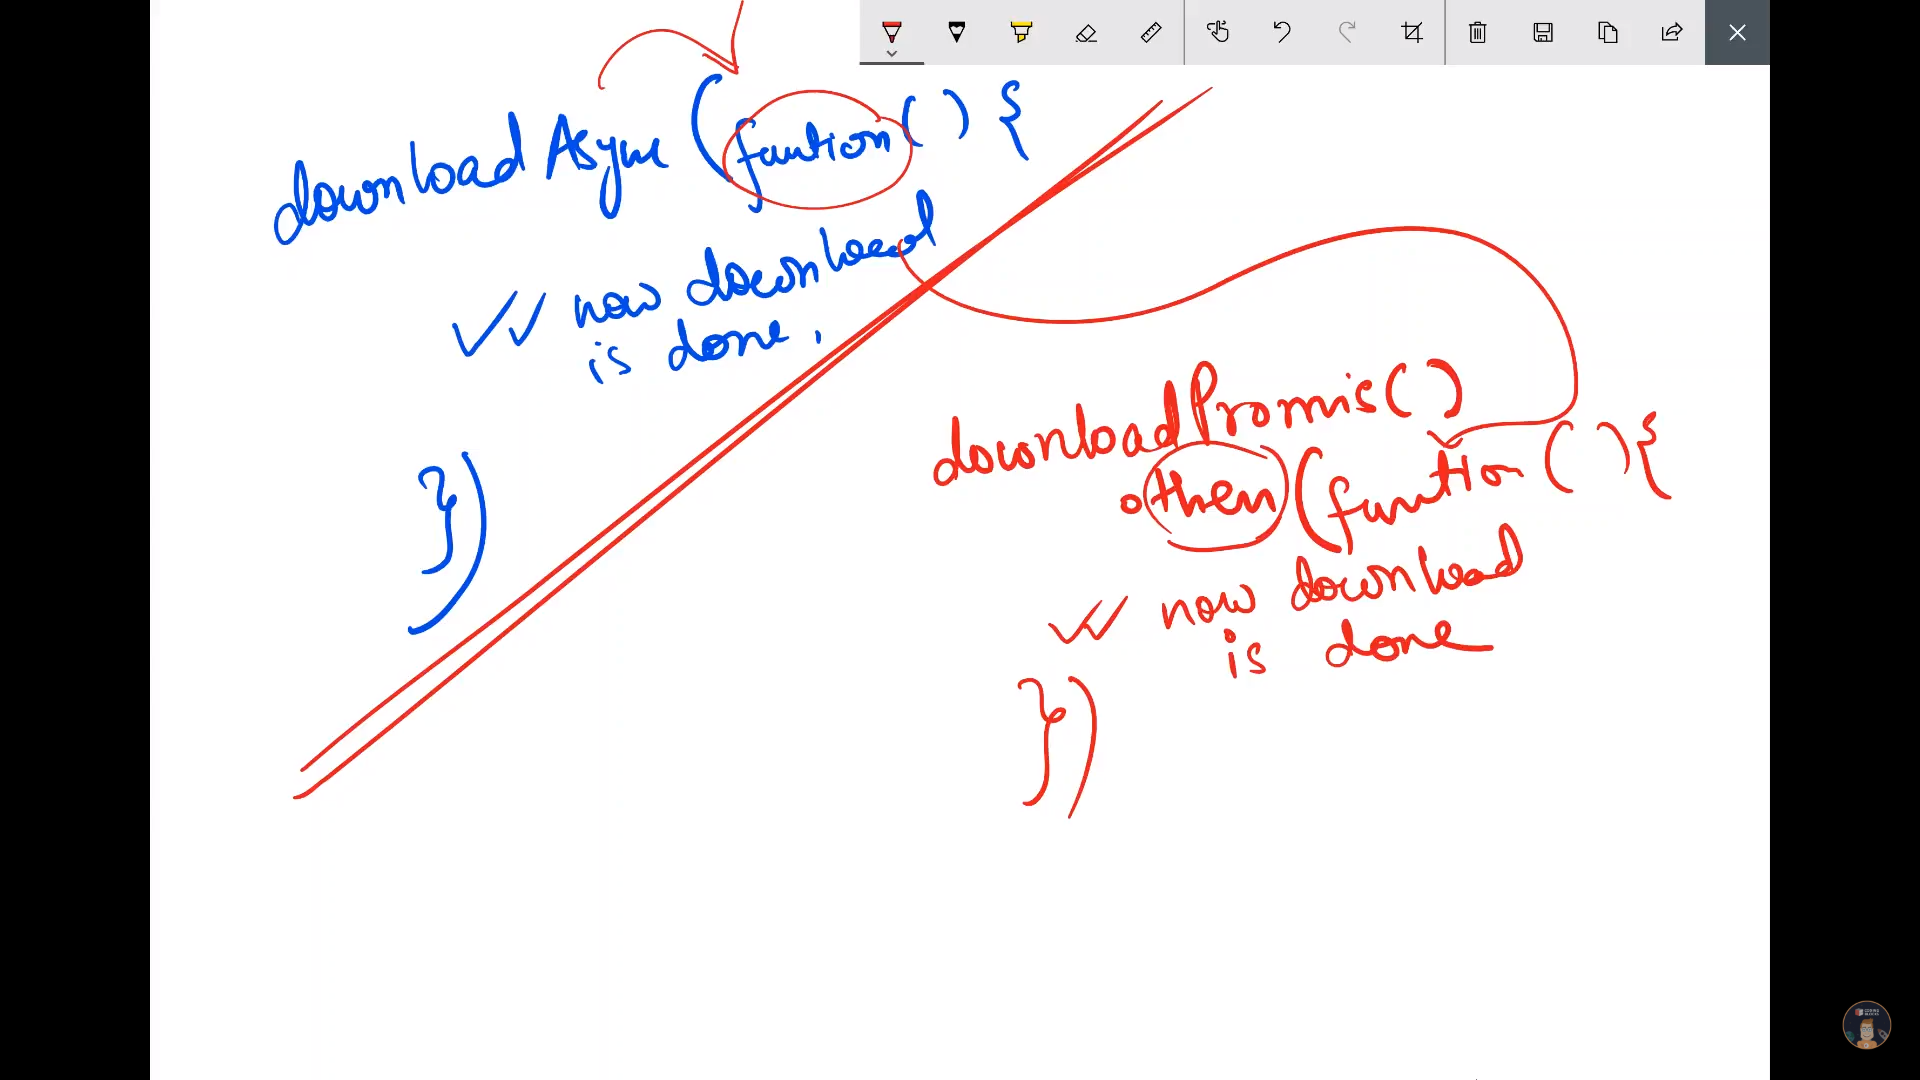 downloadAsync (funtion() {
// now download
is done,
})
downloadPromis()
.then (funtion () {
// now download
is done
})
CODING
BLOCKS